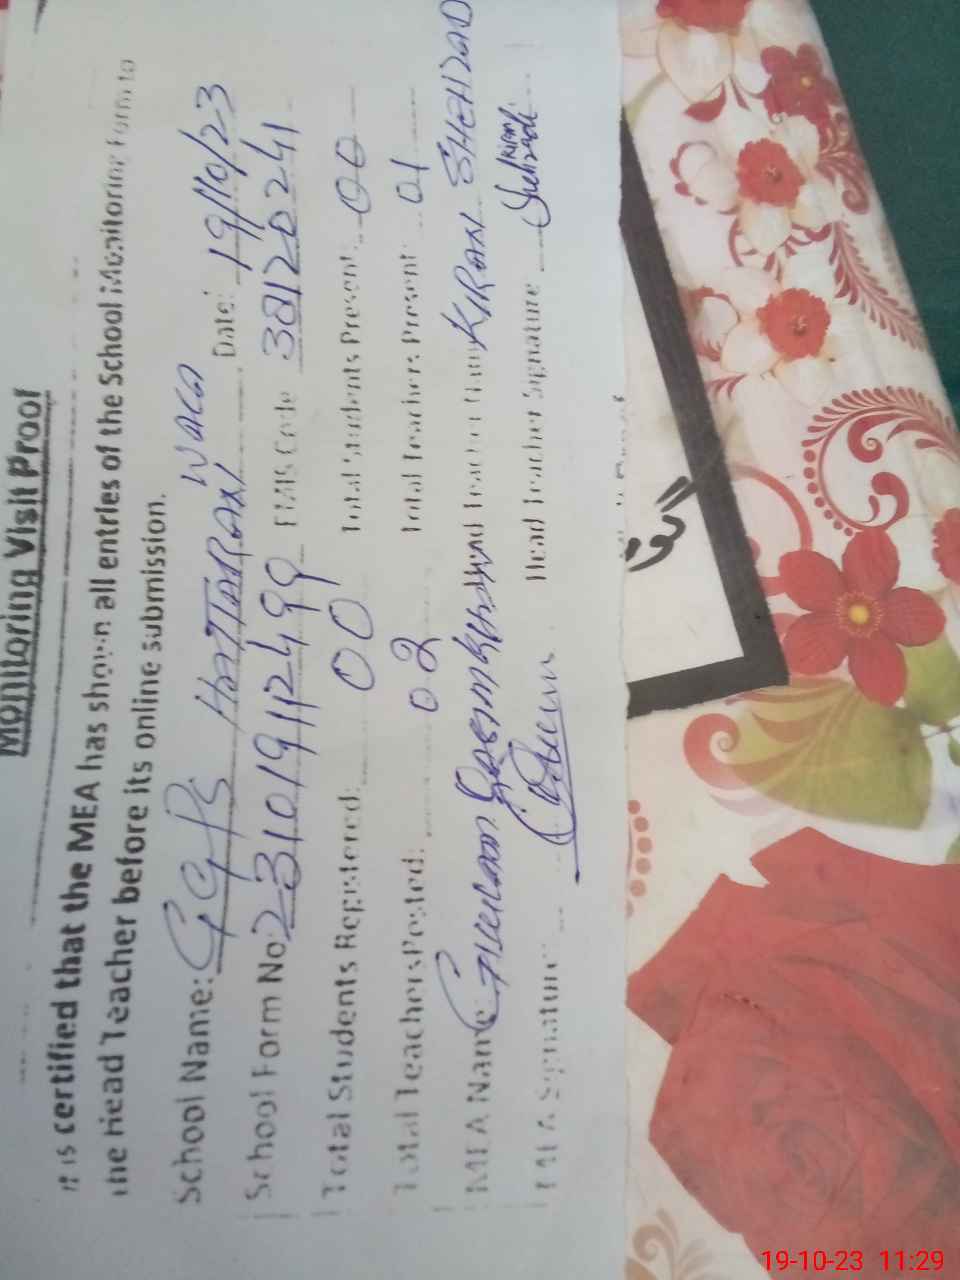 Monitoring Visit Proof
It is certified that the MEA has shown all entries of the School Monitoring Form to
the Head Teacher before its online submission.
School Name: GGPS HATTARAN WALA Date: 19/10/23
School Form No: 231019112499 EMIS Code 38120241
Total Students Registered: 00 Total Students Present: 00
Total Teachers Posted: 02 Total Teachers Present: 01
MEA Name: GHULAM Head Teacher Name KIRAN SHEHZAD
MEA Signature Head Teacher Signature Kiran Shehzadi
19-10-23 11:29